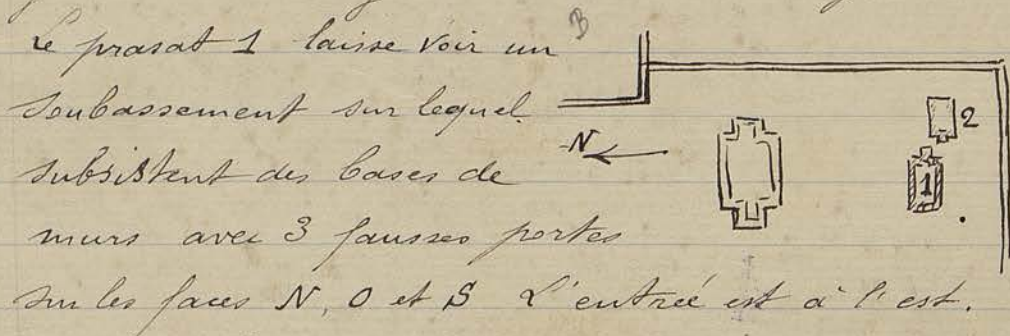 Le prasat 1 laisse voir un
B
soubassement sur lequel
2
N
subsistent des bases de
1
murs avec 3 fausses portes
sur les faces N, O et S L'entrée est à l'est.